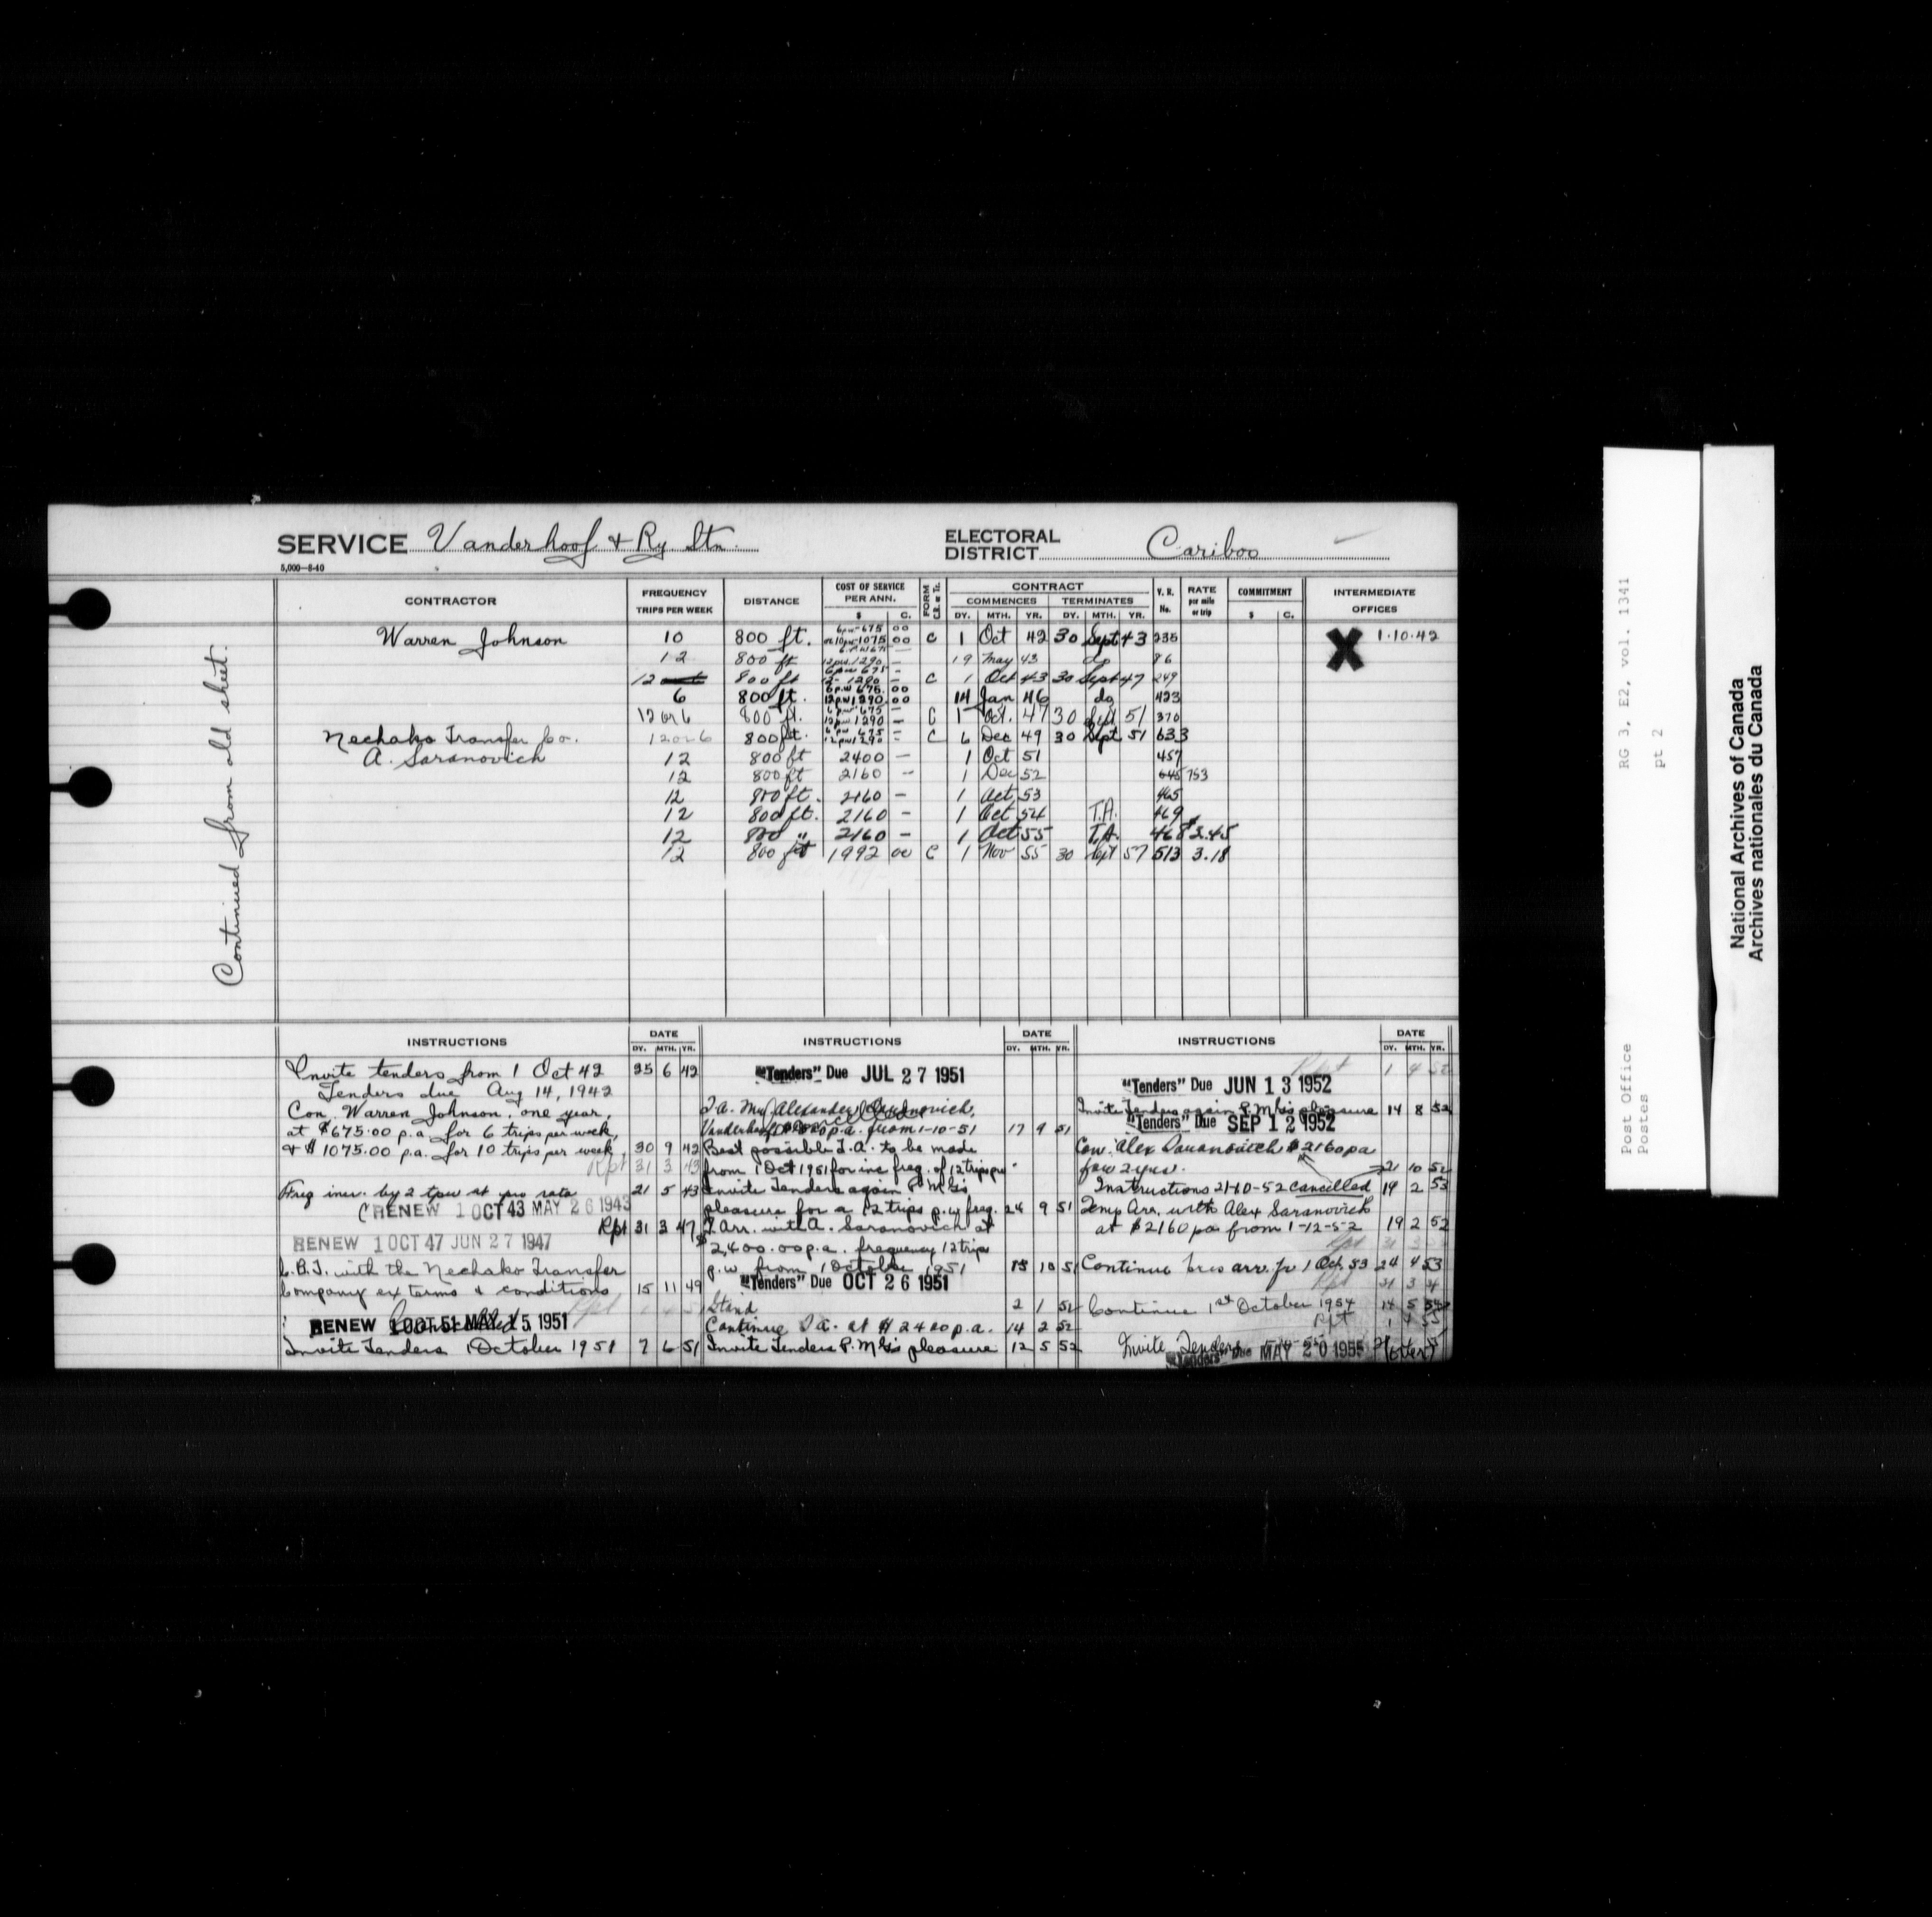 SERVICE Vanderhoof & Ry Stn. ELECTORAL DISTRICT Cariboo
5,000—8-40
Continued from old sheet.
CONTRACTOR FREQUENCY TRIPS PER WEEK DISTANCE COST OF SERVICE PER ANN. $ C. FORM CONTRACT COMMENCES DY. MTH. YR. TERMINATES DY. MTH. YR. No. RATE per mile or trip COMMITMENT $ C. INTERMEDIATE OFFICES
Warren Johnson 10 800 ft. 6 pw 675 00 or 10 pw 1075 00 C 1 Oct 42 30 Sept 43 235 X 1.10.42
12 800 ft 6 p.w. 675 — 12 p.w. 1290 — 19 May 43 do 86
12 800 ft 6 pw 675 12 - 1290 — C 1 Oct 43 30 Sept 47 249
6 800 ft. 6 p.w 675. 00 12 p.w 1290. 00 14 Jan 46 do 423
12 or 6 800 ft. 6 p.w 675 12 p.w. 1290 — C 1 Oct. 47 30 Sept 51 370
Nechako Transfer Co. 12 or 6 800 ft. 6 pw 675 12 pw 1290 — C 6 Dec 49 30 Sept 51 633
A. Saranovich 12 800 ft 2400 — 1 Oct 51 457
12 800 ft 2160 — 1 Dec 52 645 753
12 800 ft. 2160 — 1 Oct 53 465
12 800 ft. 2160 — 1 Oct 54 T.A. 469
12 800 " 2160 — 1 Oct 55 T.A. 468 $3.45
12 800 ft 1992 00 C 1 Nov 55 30 Sept 57 513 3.18
INSTRUCTIONS DATE DY. MTH. YR.
Invite tenders from 1 Oct 42 25 6 42
Tenders due Aug 14, 1942
Con. Warren Johnson, one year,
at $675.00 p.a. for 6 trips per week,
& $1075.00 p.a. for 10 trips per week, 30 9 42
Rpt 31 3 43
Freq incr. by 2 tpw at pro rata 21 5 43
RENEW 1 OCT 43 MAY 26 1943
Rpt 31 3 47
RENEW 1 OCT 47 JUN 27 1947
C.B.T. with the Nechako Transfer
Company ex terms & conditions 15 11 49
Rpt
RENEW 1 OCT 51 MAY 15 1951
Invite Tenders 1 October 1951 7 6 51
INSTRUCTIONS DATE DY. MTH. YR.
"Tenders" Due JUL 27 1951
T.A. Mr. Alexander Saranovich,
Vanderhoof p.a. from 1-10-51 17 9 51
Best possible T.A. to be made
from 1 Oct 1951 for inc freq. of 12 trips pw
Invite Tenders again P.M.G's
pleasure for a 12 trips p.w freq. 24 9 51
T. Arr. with A. Saranovich at
$2,400.00 p.a. frequency 12 trips
p.w. from 1 October 1951 15 10 51
"Tenders" Due OCT 26 1951
Stand 2 1 52
Continue T.A. at $2400 p.a. 14 2 52
Invite Tenders P.M.G's pleasure 12 5 52
INSTRUCTIONS DATE DY. MTH. YR.
Rpt 1 4 52
"Tenders" Due JUN 13 1952
Invite Tenders again P.M.G's pleasure 14 8 52
"Tenders" Due SEP 12 1952
Con. Alex Saranovich $2160 pa
for 2 yrs. 21 10 52
Instructions 21-10-52 cancelled 19 2 53
Temp Arr. with Alex Saranovich
at $2160 pa from 1-12-52 19 2 52
Rpt 31 3
Continue Temp arr. fr 1 Oct. 53 24 4 53
Rpt 31 3 54
Continue 1st October 1954 14 5 54
Rpt 1 4 55
Invite Tenders
"Tenders" Due MAY 20 1955 (over)
RG 3, E2, vol. 1341
pt 2
Post Office
Postes
National Archives of Canada
Archives nationales du Canada